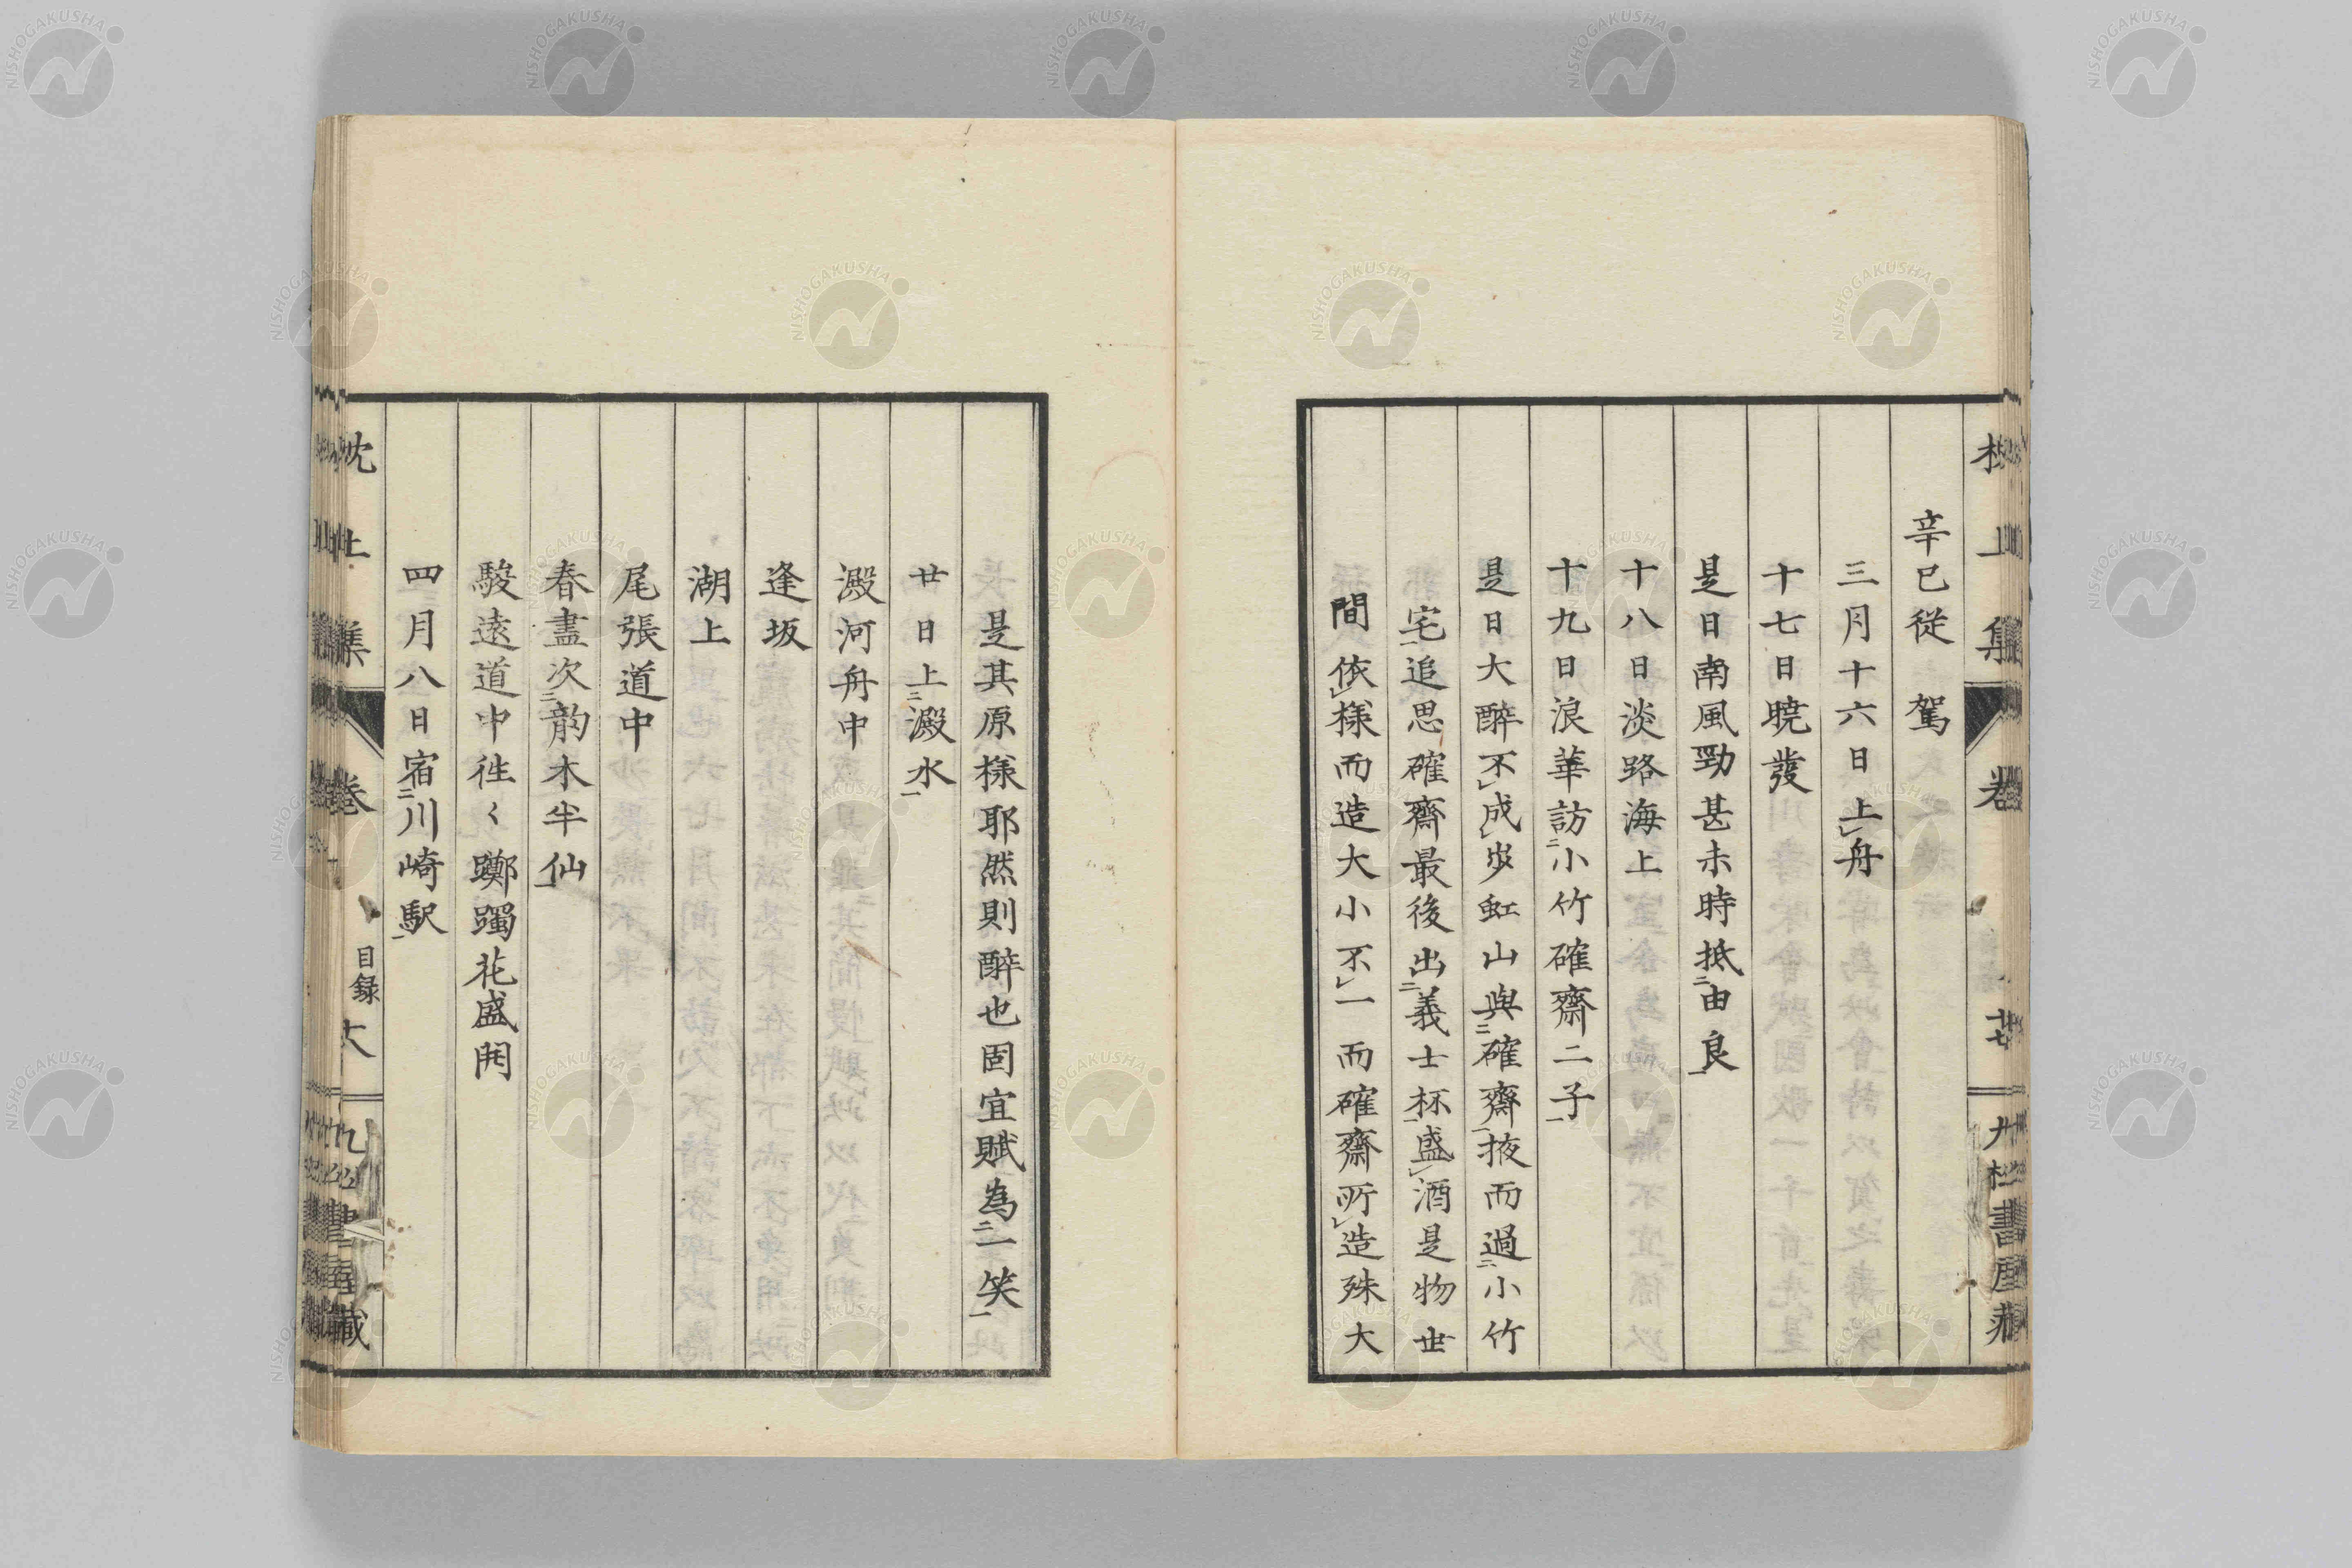 辛巳從駕
三月十六日上舟
十七日曉發
是日南風勁甚未時抵由良
十八日淡路海上
十九日浪華訪小竹確齋二子
是日大醉不成步虹山與確齋掖而過小竹
宅追思確齋最後出義士杯盛酒是物世
間依樣而造大小不一而確齋所造殊大
是其原樣耶然則醉也固宜賦為一笑
廿日上澱水
澱河舟中
逢坂
湖上
尾張道中
春盡次韵木半仙
駿遠道中徃〻躑躅花盛開
四月八日宿川崎駅
枕上集 卷
目録
NISHOGAKUSHA